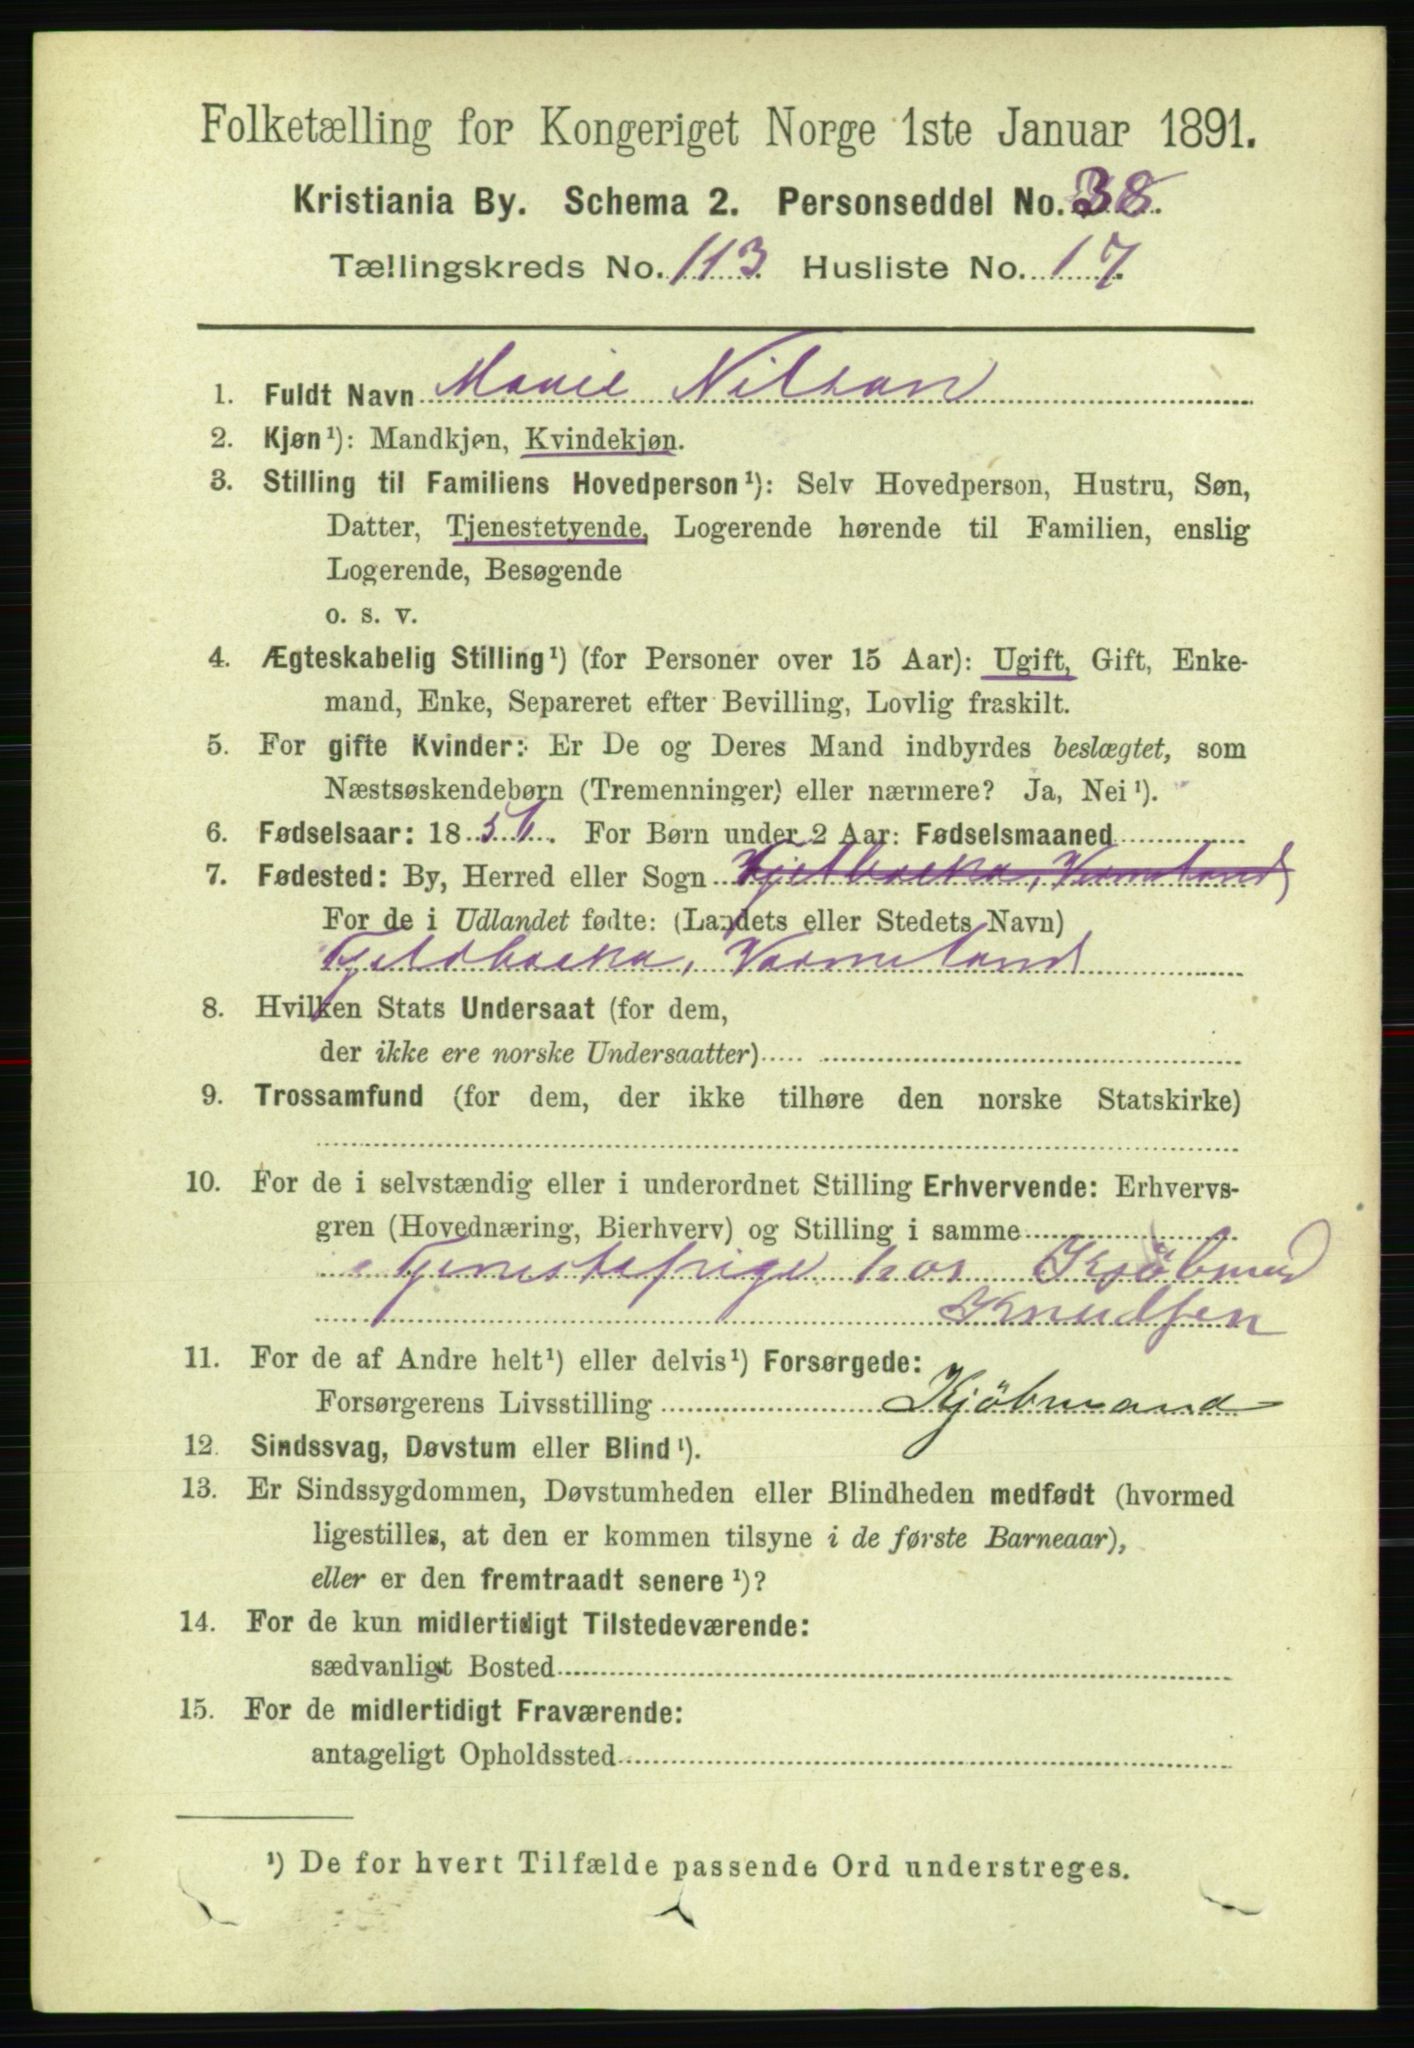 Folketælling for Kongeriget Norge 1ste Januar 1891.
Kristiania By. Schema 2. Personseddel No. 38.
Tællingskreds No. 113. Husliste No. 17.
1. Fuldt Navn Marie Nilsan
2. Kjøn¹): Mandkjøn, Kvindekjøn.
3. Stilling til Familiens Hovedperson¹): Selv Hovedperson, Hustru, Søn,
Datter, Tjenestetyende, Logerende hørende til Familien, enslig
Logerende, Besøgende
o. s. v.
4. Ægteskabelig Stilling¹) (for Personer over 15 Aar): Ugift, Gift, Enke-
mand, Enke, Separeret efter Bevilling, Lovlig fraskilt.
5. For gifte Kvinder: Er De og Deres Mand indbyrdes beslægtet, som
Næstsøskendebørn (Tremenninger) eller nærmere? Ja, Nei¹).
6. Fødselsaar: 1856. For Børn under 2 Aar: Fødselsmaaned
7. Fødested: By, Herred eller Sogn Vermland
For de i Udlandet fødte: (Landets eller Stedets Navn)
Fjeldbacka, Varmeland
8. Hvilken Stats Undersaat (for dem,
der ikke ere norske Undersaatter)
9. Trossamfund (for dem, der ikke tilhøre den norske Statskirke)
10. For de i selvstændig eller i underordnet Stilling Erhvervende: Erhvervs-
gren (Hovednæring, Bierhverv) og Stilling i samme
Tjenestepige hos Kjöbmd
Knudsen
11. For de af Andre helt¹) eller delvis¹) Forsørgede:
Forsørgerens Livsstilling Kjöbmand
12. Sindssvag, Døvstum eller Blind¹).
13. Er Sindssygdommen, Døvstumheden eller Blindheden medfødt (hvormed
ligestilles, at den er kommen tilsyne i de første Barneaar),
eller er den fremtraadt senere¹)?
14. For de kun midlertidigt Tilstedeværende:
sædvanligt Bosted
15. For de midlertidigt Fraværende:
antageligt Opholdssted
¹) De for hvert Tilfælde passende Ord understreges.